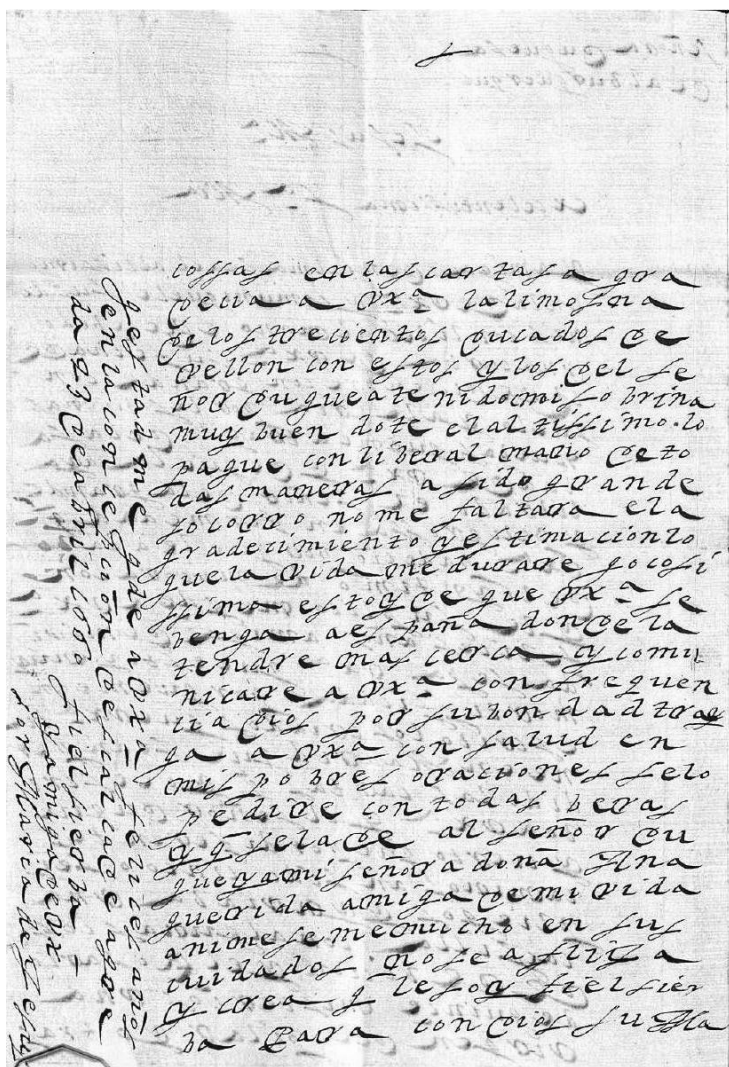 cossas en las cartas a gra
decia a Vxª la limosna
de los trecientos ducados de
vellon con estos y los del se
ñor duque a tenido mi sobrina
muy buen dote el altissimo lo
pague con liberal mano de to
das maneras a sido grande
socorro no me faltara el a
gradecimiento y estimacion lo
que la vida me durare gocosi
ssima estoy de que Vxª se
benga a españa donde la
tendre mas cerca y comu
nicare a Vxª con frequen
cia dios por su bondad tray
ga a Vxª con salud en
mis pobres oraciones se lo
pedire con todas beras
y q se la de al señor du
que y a mi señora doña Ana
querida amiga de mi vida
animeseme mucho en sus
cuidados no se aflija
y crea q le soy fiel sier
ba para con dios su Ma
gestad me gde a Vxª felices años
en la concepcion descalca de agre
da 23 de abril 1660 fiel sierba
y amiga de Vx
sor Maria de Jesus